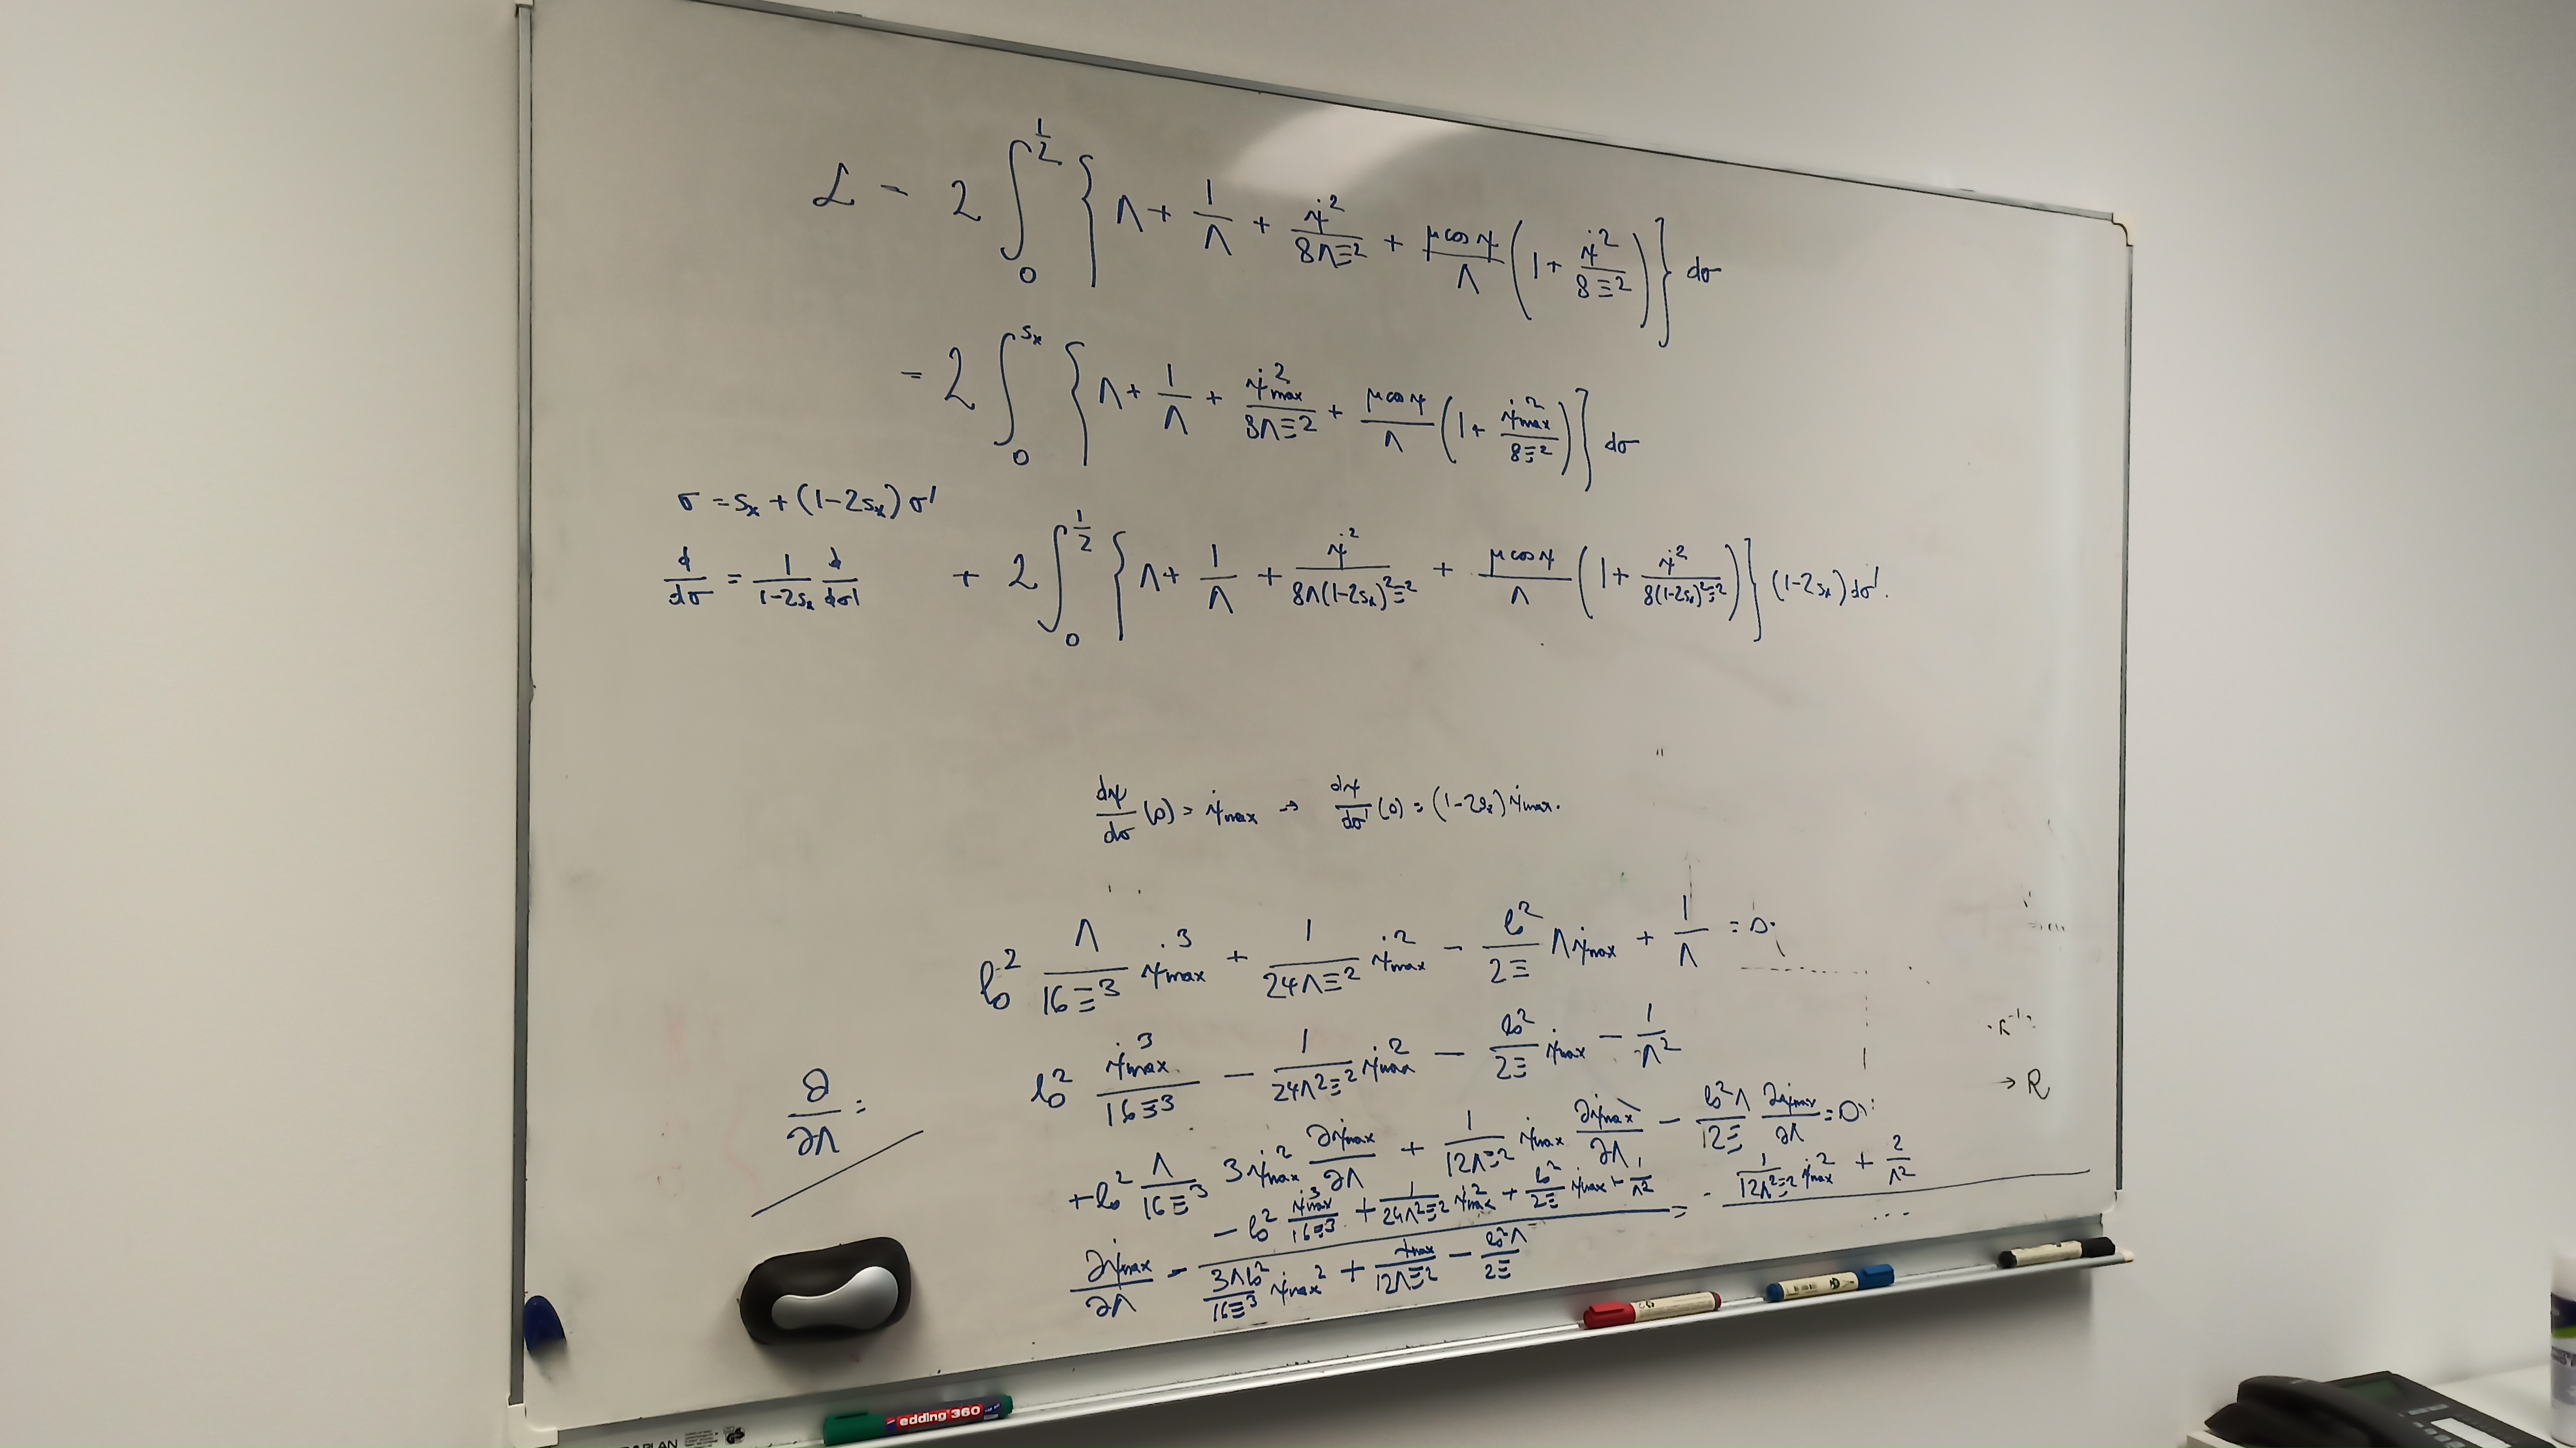 ℒ = 2 ∫₀^{1/2} { Λ + 1/Λ + ψ̇²/(8ΛΞ²) + (μ cos ψ)/Λ (1 + ψ̇²/(8Ξ²)) } dσ
= 2 ∫₀^{sₓ} { Λ + 1/Λ + ψ̇max²/(8ΛΞ²) + (μ cos ψ)/Λ (1 + ψ̇max²/(8Ξ²)) } dσ
σ = sₓ + (1-2sₓ) σ'
d/dσ = 1/(1-2sₓ) d/dσ'
+ 2 ∫₀^{1/2} { Λ + 1/Λ + ψ̇²/(8Λ(1-2sₓ)²Ξ²) + (μ cos ψ)/Λ (1 + ψ̇²/(8(1-2sₓ)²Ξ²)) } (1-2sₓ) dσ'.
dψ/dσ (0) = ψ̇max → dψ/dσ' (0) = (1-2sₓ) ψ̇max.
b² Λ/(16Ξ³) ψ̇max³ + 1/(24ΛΞ²) ψ̇max² - b²/(2Ξ) Λ ψ̇max + 1/Λ = 0.
∂/∂Λ : b² ψ̇max³/(16Ξ³) - 1/(24Λ²Ξ²) ψ̇max² - b²/(2Ξ) ψ̇max - 1/Λ²
→ R
+ b² Λ/(16Ξ³) 3ψ̇max² ∂ψ̇max/∂Λ + 1/(12ΛΞ²) ψ̇max ∂ψ̇max/∂Λ - b²Λ/(12Ξ) ∂ψ̇max/∂Λ = 0
∂ψ̇max/∂Λ = (-b² ψ̇max³/(16Ξ³) + 1/(24Λ²Ξ²) ψ̇max² + b²/(2Ξ) ψ̇max + 1/Λ²) / (3Λb²/(16Ξ³) ψ̇max² + ψ̇max/(12ΛΞ²) - b²Λ/(2Ξ)) = (1/(12Λ²Ξ²) ψ̇max² + 2/Λ²) / ...
edding 360